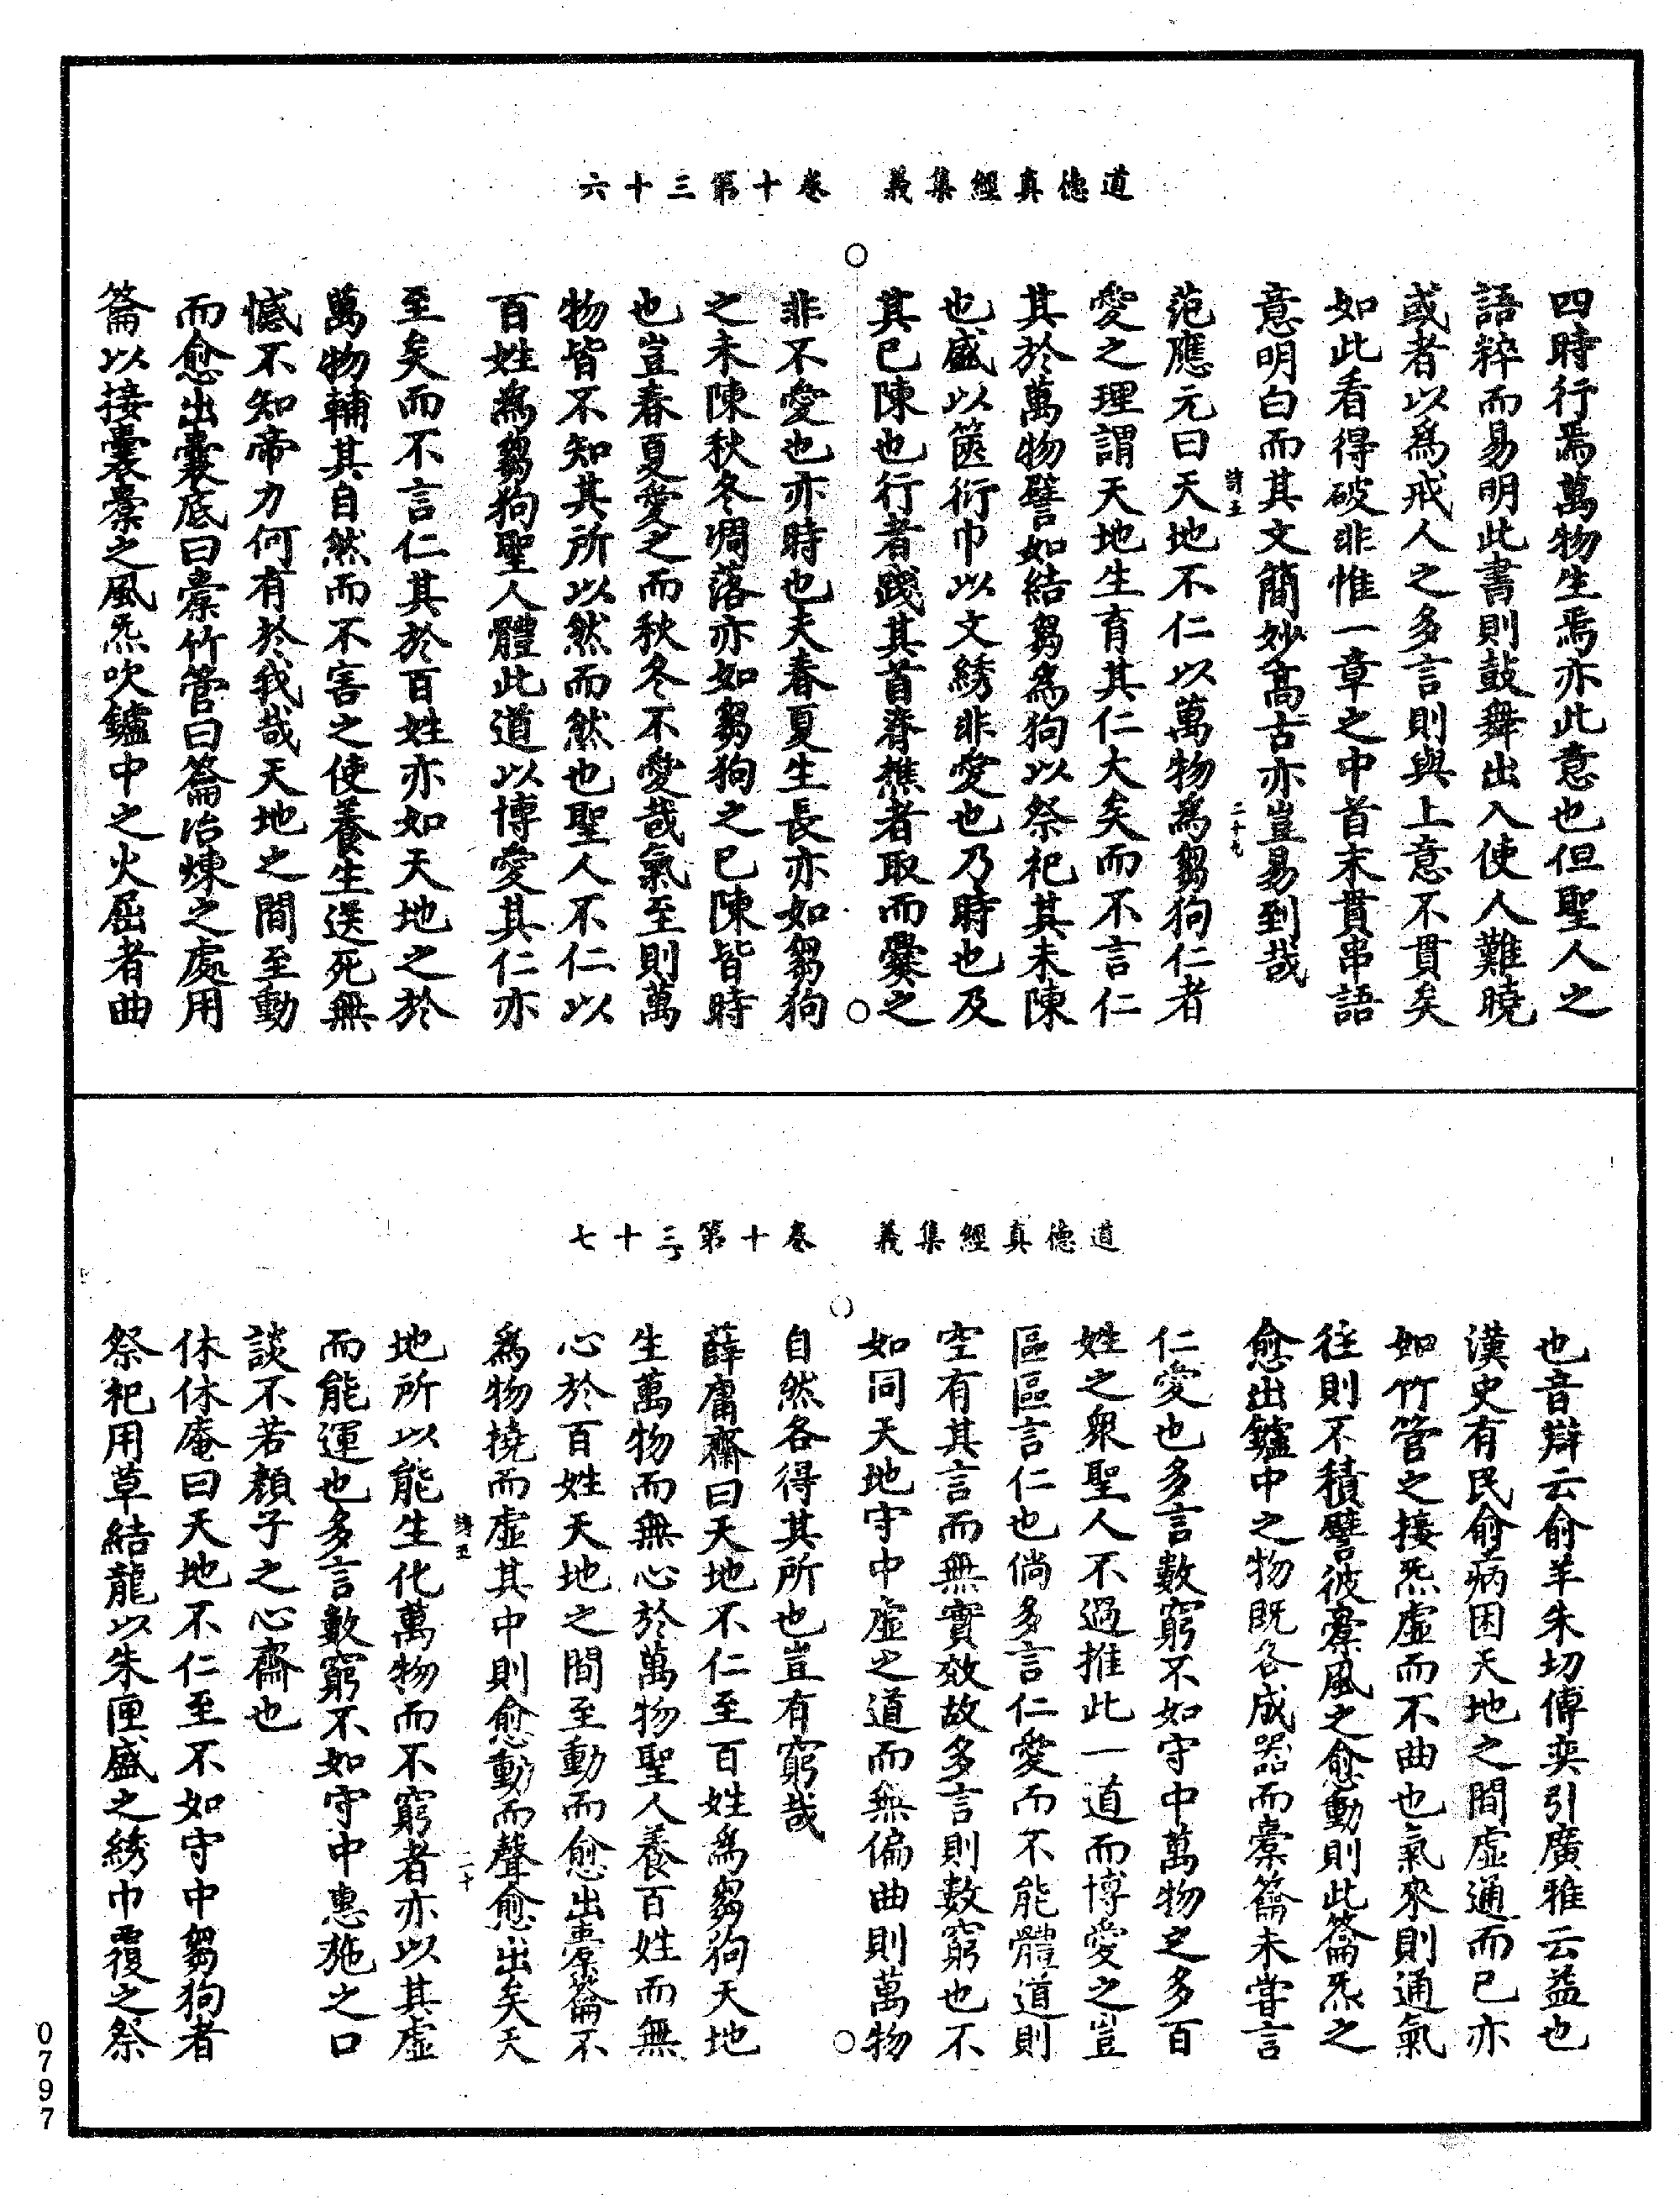 道德真經集義 卷十第三十六
四時行焉萬物生焉亦此意也但聖人之
語粹而易明此書則鼓舞出入使人難曉
或者以為戒人之多言則與上意不貫矣
如此看得破非惟一章之中首末貫串語
意明白而其文簡妙高古亦豈易到哉
詩五 二十九
范應元曰天地不仁以萬物為芻狗仁者
愛之理謂天地生育其仁大矣而不言仁
其於萬物譬如結芻為狗以祭祀其未陳
也盛以篋衍巾以文綉非愛也乃時也及
其已陳也行者踐其首脊樵者取而爨之
非不愛也亦時也夫春夏生長亦如芻狗
之未陳秋冬凋落亦如芻狗之已陳皆時
也豈春夏愛之而秋冬不愛哉氣至則萬
物皆不知其所以然而然也聖人不仁以
百姓為芻狗聖人體此道以博愛其仁亦
至矣而不言仁其於百姓亦如天地之於
萬物輔其自然而不害之使養生送死無
憾不知帝力何有於我哉天地之間至動
而愈出囊底曰橐竹管曰籥冶煉之處用
籥以接囊橐之風炁吹鑪中之火屈者曲
道德真經集義 卷十第三十七
也音辯云俞羊朱切傅奕引廣雅云益也
漢史有民俞病困天地之間虛通而已亦
如竹管之接炁虛而不曲也氣來則通氣
往則不積譬彼橐風之愈動則此籥炁之
愈出鑪中之物既各成器而橐籥未嘗言
仁愛也多言數窮不如守中萬物之多百
姓之眾聖人不過推此一道而博愛之豈
區區言仁也倘多言仁愛而不能體道則
空有其言而無實效故多言則數窮也不
如同天地守中虛之道而無偏曲則萬物
自然各得其所也豈有窮哉
薛庸齋曰天地不仁至百姓為芻狗天地
生萬物而無心於萬物聖人養百姓而無
心於百姓天地之間至動而愈出橐籥不
為物撓而虛其中則愈動而聲愈出矣天
詩五 二十
地所以能生化萬物而不窮者亦以其虛
而能運也多言數窮不如守中惠施之口
談不若顏子之心齋也
休休庵曰天地不仁至不如守中芻狗者
祭祀用草結龍以朱匣盛之綉巾覆之祭
0797